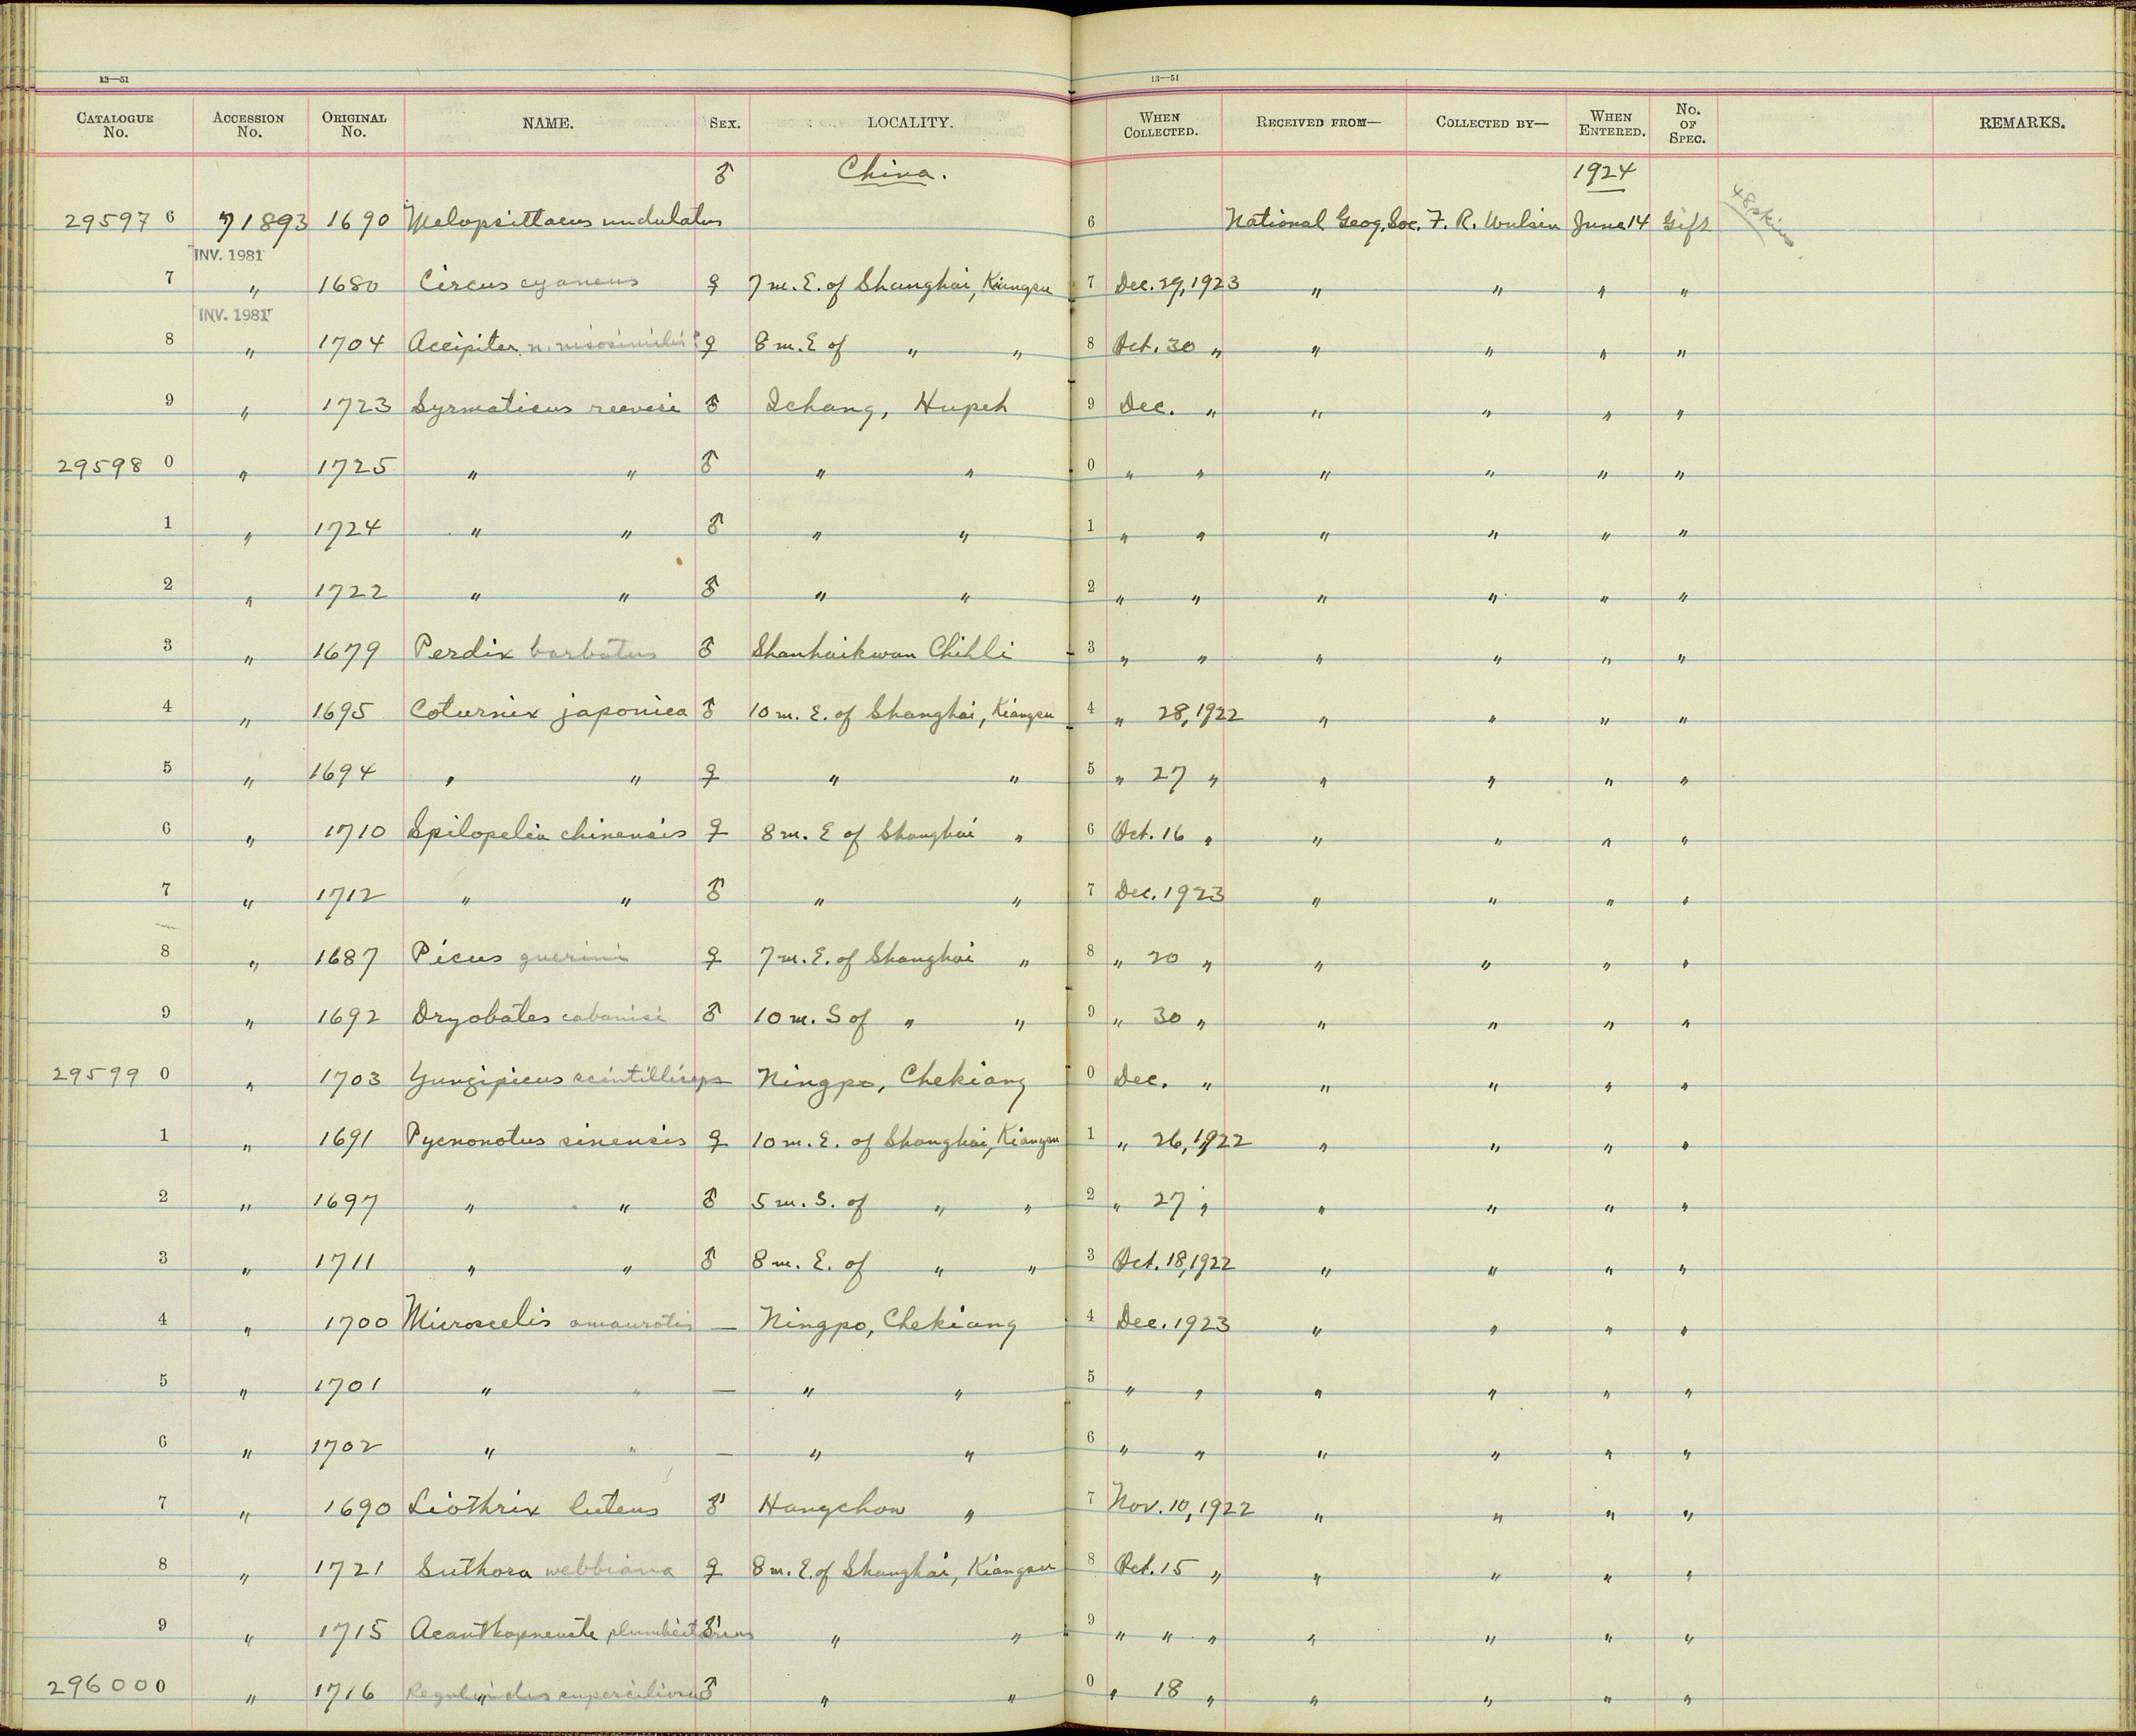 13—51 13—51
CATALOGUE No. ACCESSION No. ORIGINAL No. NAME. SEX. LOCALITY. WHEN COLLECTED. RECEIVED FROM— COLLECTED BY— WHEN ENTERED. No. OF SPEC. REMARKS.
♂ China. 1924
29597 6 71893 1690 Melopsittacus undulatus 6 National Geog. Soc. F. R. Wulsin June 14 Gift 48 skins
INV. 1981
7 " 1680 Circus cyaneus ♀ 7 m. E. of Shanghai, Kiangsu 7 Dec. 29, 1923 " " " "
INV. 1981
8 " 1704 Accipiter n. nisosimilis ♀ 8 m. E of " " 8 Oct. 30 " " " " "
9 " 1723 Syrmaticus reevesi ♂ Ichang, Hupeh 9 Dec. " " " " "
29598 0 " 1725 " " ♂ " " 0 " " " " " "
1 " 1724 " " ♂ " " 1 " " " " " "
2 " 1722 " " ♂ " " 2 " " " " " "
3 " 1679 Perdix barbatus ♂ Shanhaikwan Chihli 3 " " " " " "
4 " 1695 Coturnix japonica ♂ 10 m. E. of Shanghai, Kiangsu 4 " 28, 1922 " " " "
5 " 1694 " " ♀ " " 5 " 27 " " " " "
6 " 1710 Spilopelia chinensis ♀ 8 m. E of Shanghai " 6 Oct. 16 " " " " "
7 " 1712 " " ♂ " " 7 Dec. 1923 " " " "
8 " 1687 Picus guerini ♀ 7 m. E. of Shanghai " 8 " 20 " " " " "
9 " 1692 Dryobates cabanisi ♂ 10 m. S of " " 9 " 30 " " " " "
29599 0 " 1703 Yungipicus scintilliceps Ningpo, Chekiang 0 Dec. " " " " "
1 " 1691 Pycnonotus sinensis ♀ 10 m. E. of Shanghai, Kiangsu 1 " 26, 1922 " " " "
2 " 1697 " " ♂ 5 m. S. of " " 2 " 27 " " " " "
3 " 1711 " " ♂ 8 m. E. of " " 3 Oct. 18, 1922 " " " "
4 " 1700 Microscelis amaurotis — Ningpo, Chekiang 4 Dec. 1923 " " " "
5 " 1701 " " — " " 5 " " " " " "
6 " 1702 " " — " " 6 " " " " " "
7 " 1690 Liothrix luteus ♂ Hangchow " 7 Nov. 10, 1922 " " " "
8 " 1721 Suthora webbiana ♀ 8 m. E. of Shanghai, Kiangsu 8 Oct. 15 " " " " "
9 " 1715 Acanthopneuste plumbeitarsus ♂ " " 9 " " " " " " "
29600 0 " 1716 Reguloides superciliosus ♂ " " 0 " 18 " " " " "